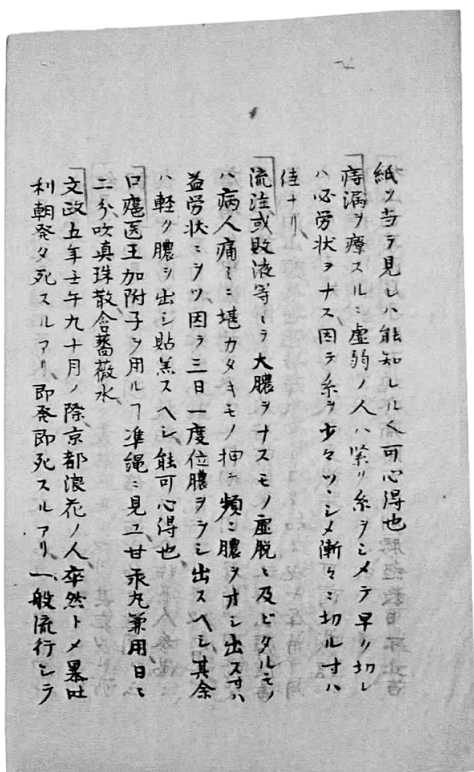 紙ヲ当テ見レハ能知レル也可心得也
「痔漏ヲ療スルニ虚弱ノ人ハ緊ク糸ヲシメテ早ク切レ
ハ必労状ヲナス因テ糸ヲ少々ツヽシメ漸々ニ切ル寸ハ
佳ナリ
「流注或敗液等ニテ大膿ヲナスモノ虚脱ニ及ビタルモノ
ハ病人痛ミニ堪カタキモノ押テ頻ニ膿ヲオシ出ス寸ハ
益労状ニウツ因テ三日一度位膿ヲヲシ出スヘシ其余
ハ軽ク膿ヲ出シ貼羔スヘシ能可心得也
「口瘡医王加附子ヲ用ルヿ準縄ニ見ユ甘汞丸兼用日ニ
二分吹真珠散含薔薇水
「文政五年壬午九十月ノ際京都浪花ノ人卒然トメ暴吐
利朝発夕死スルアリ即発即死スルアリ一般流行シテ